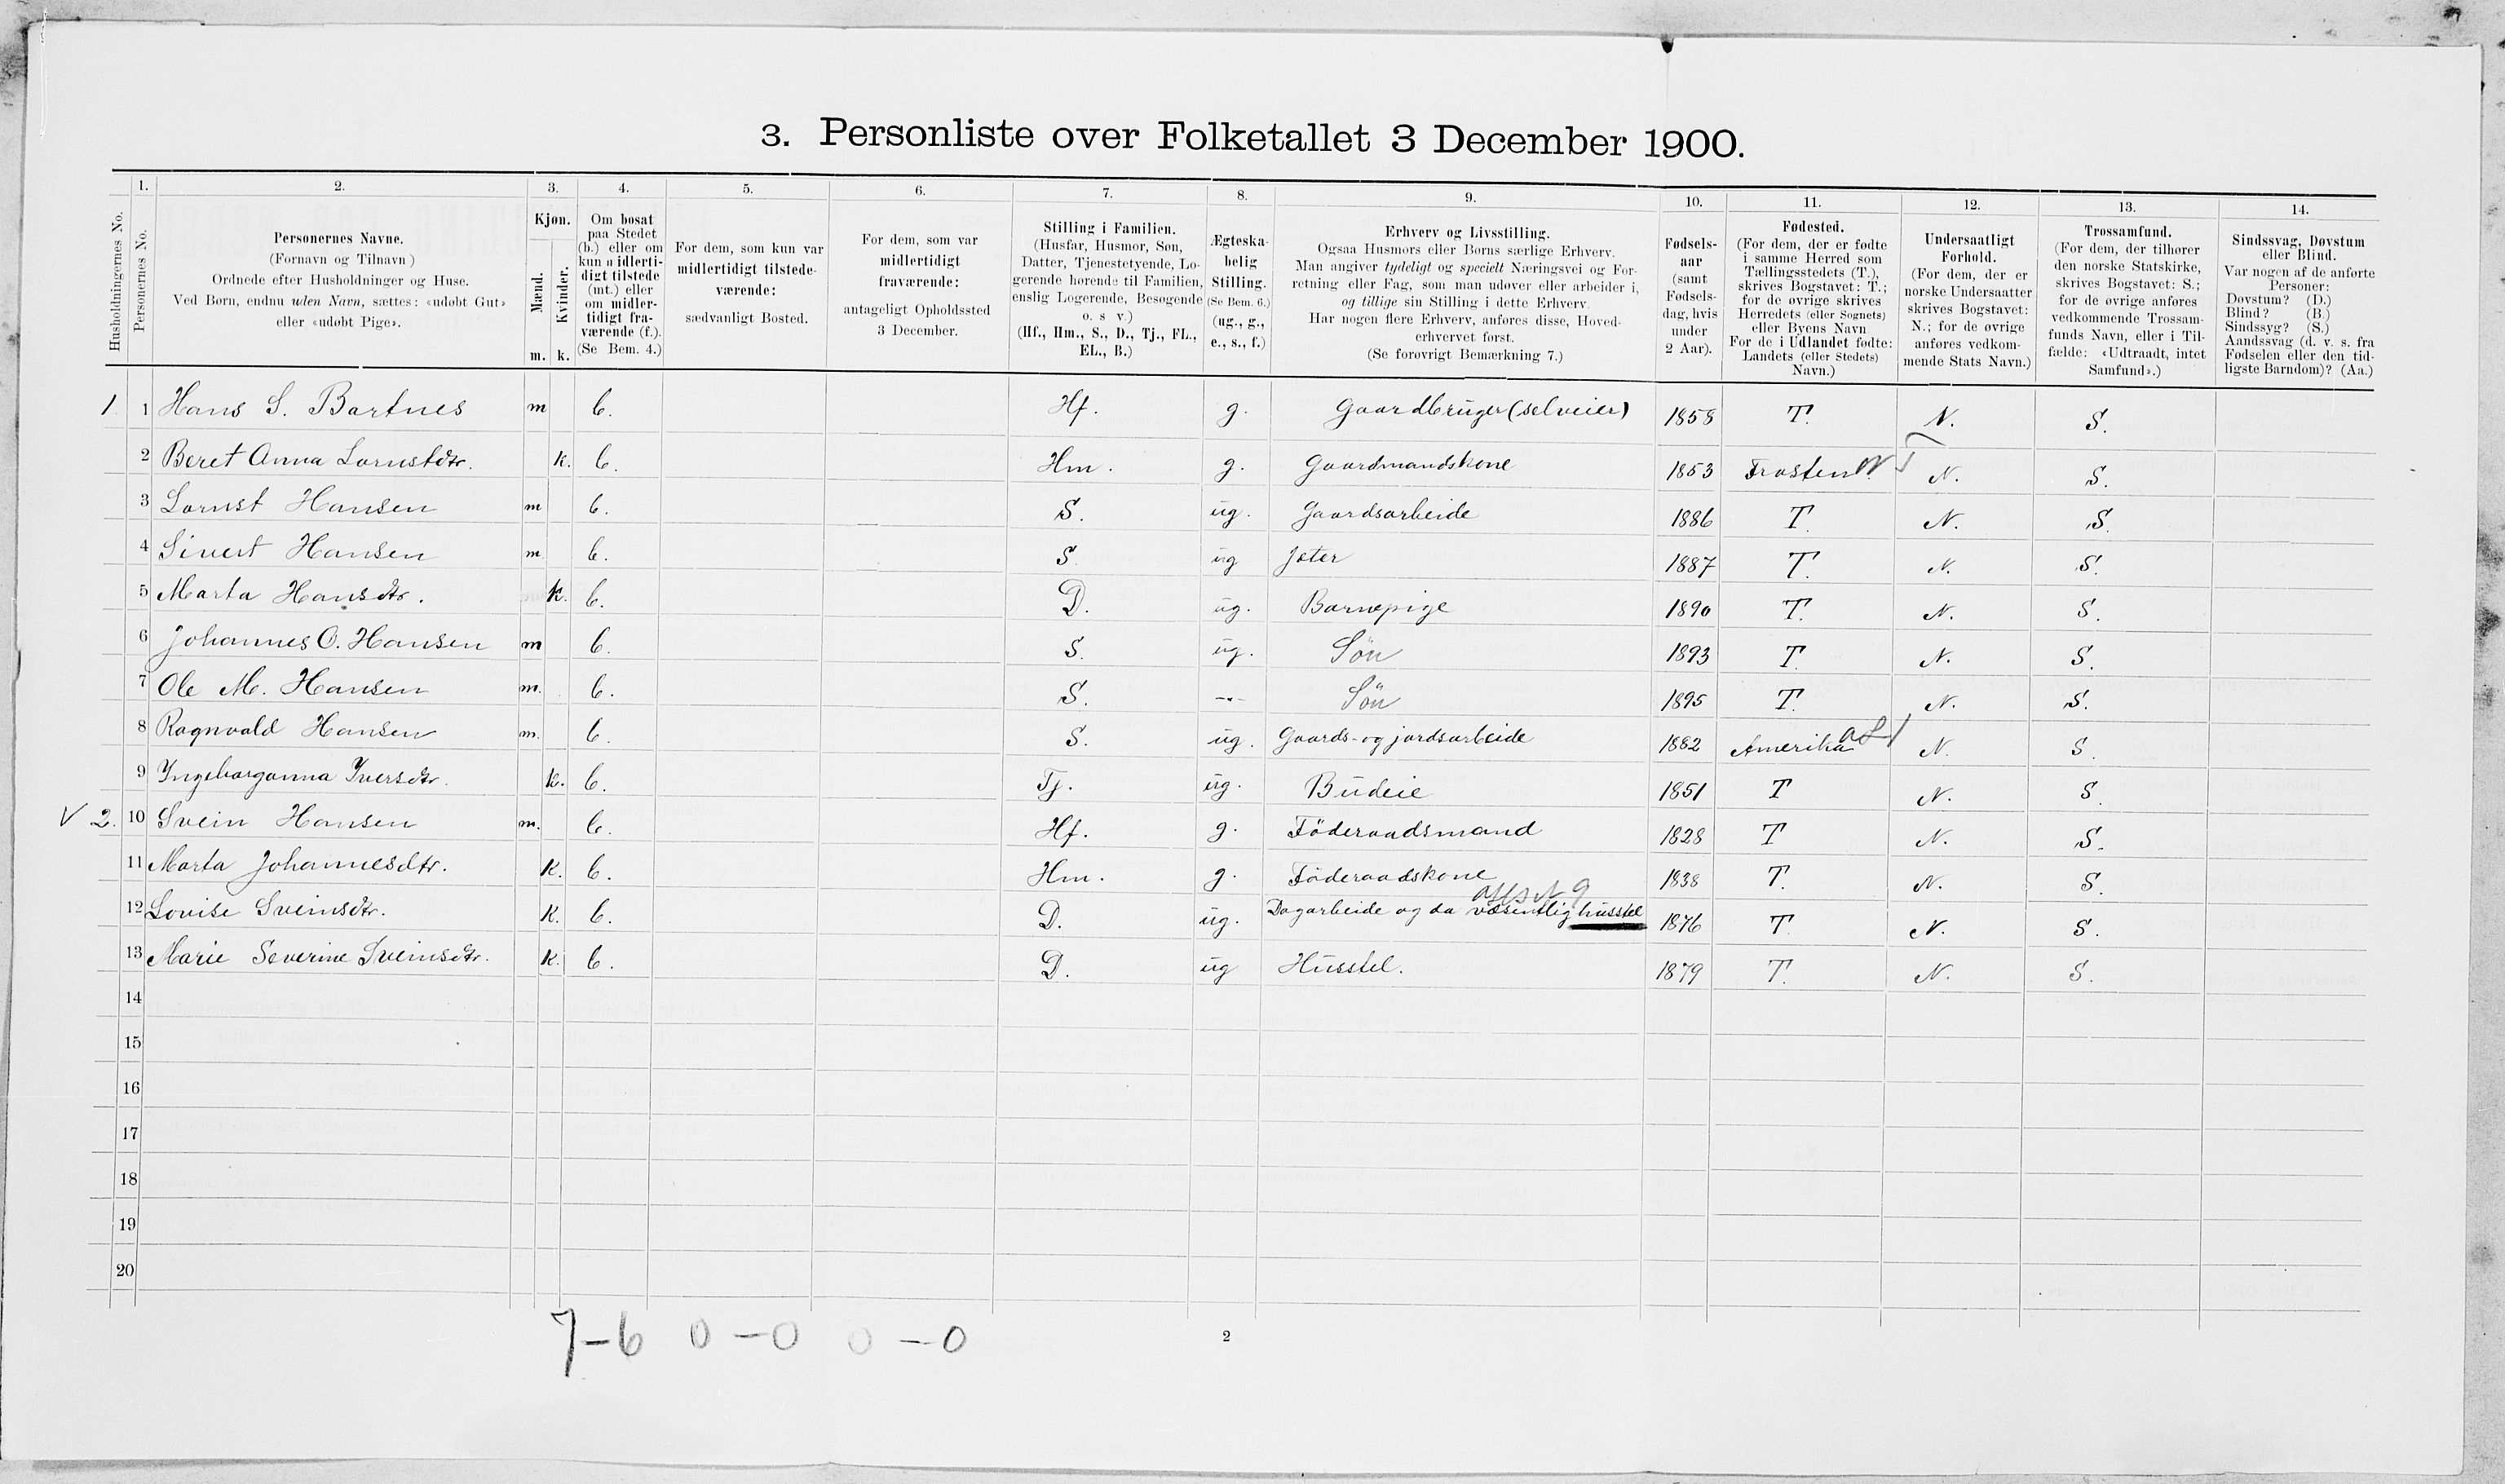 3. Personliste over Folketallet 3 December 1900.
1. 2. 3. 4. 5. 6. 7. 8. 9. 10. 11. 12. 13. 14.
Husholdningernes No.
Personernes No.
Personernes Navne.
(Fornavn og Tilnavn)
Ordnede efter Husholdninger og Huse.
Ved Børn, endnu uden Navn, sættes: «udøbt Gut»
eller «udøbt Pige».
Kjøn.
Mænd.
Kvinder.
m. k.
Om bosat
paa Stedet
(b.) eller om
kun midlerti-
digt tilstede
(mt.) eller
om midler-
tidigt fra-
værende (f.).
(Se Bem. 4.)
For dem, som kun var
midlertidigt tilstede-
værende:
sædvanligt Bosted.
For dem, som var
midlertidigt
fraværende:
antageligt Opholdssted
3 December.
Stilling i Familien.
(Husfar, Husmor, Søn,
Datter, Tjenestetyende, Lo-
gerende hørende til Familien,
enslig Logerende, Besøgende
o. s v.)
(Hf., Hm., S., D., Tj., FL.,
EL., B.)
Ægteska-
belig
Stilling.
(Se Bem. 6.)
(ug., g.,
e., s., f.)
Erhverv og Livsstilling.
Ogsaa Husmors eller Børns særlige Erhverv.
Man angiver tydeligt og specielt Næringsvei og For-
retning eller Fag, som man udøver eller arbeider i,
og tillige sin Stilling i dette Erhverv.
Har nogen flere Erhverv, anføres disse, Hoved-
erhvervet først.
(Se forøvrigt Bemærkning 7.)
Fødsels-
aar
(samt
Fødsels-
dag, hvis
under
2 Aar).
Fødested.
(For dem, der er fødte
i samme Herred som
Tællingsstedets (T.),
skrives Bogstavet: T.;
for de øvrige skrives
Herredets (eller Sognets)
eller Byens Navn
For de i Udlandet fødte:
Landets (eller Stedets)
Navn.)
Undersaatligt
Forhold.
(For dem, der er
norske Undersaatter
skrives Bogstavet:
N.; for de øvrige
anføres vedkom-
mende Stats Navn.)
Trossamfund.
(For dem, der tilhører
den norske Statskirke,
skrives Bogstavet: S.;
for de øvrige anføres
vedkommende Trossam-
funds Navn, eller i Til-
fælde: «Udtraadt, intet
Samfund».)
Sindssvag, Døvstum
eller Blind.
Var nogen af de anførte
Personer:
Døvstum? (D.)
Blind? (B.)
Sindssyg? (S.)
Aandssvag (d. v. s. fra
Fødselen eller den tid-
ligste Barndom)? (Aa.)
1. 1 Hans S. Bartnes m b. Hf. g. Gaardbruger (selveier) 1858 T. N. S.
2 Beret Anna Lornstdtr. k. b. Hm. g. Gaardmandskone 1853 Frosten N. S.
3 Lornst Hansen m b. S. ug. Gaardsarbeide 1886 T. N. S.
4 Sivert Hansen m b. S ug Jeter 1887 T. N. S.
5 Marta Hansdtr. k. b. D. ug. Barnepige 1890 T. N. S.
6 Johannes O. Hansen m b. S. ug. Sön 1893 T. N. S.
7 Ole M. Hansen m. b. S. -"- Sön 1895 T. N. S.
8 Ragnvald Hansen m. b. S. ug. Gaards- og jordsarbeide 1882 Amerika N. S.
9 Ingeborganna Iversdtr. k. b. Tj. ug. Budeie 1851 T N. S.
V 2. 10 Svein Hansen m. b. Hf. g. Föderaadsmand 1828 T N. S.
11 Marta Johannesdtr. K. b. Hm. g. Föderaadskone 1838 T. N. S.
12 Lovise Sveinsdtr. K. b. D. ug. Dagarbeide og da væsentlig husstel 1876 T N. S.
13 Marie Severine Sveinsdtr. K. b. D. ug Husstel. 1879 T. N. S.
14
15
16
17
18
19
20
7–6 0–0 0–0
2